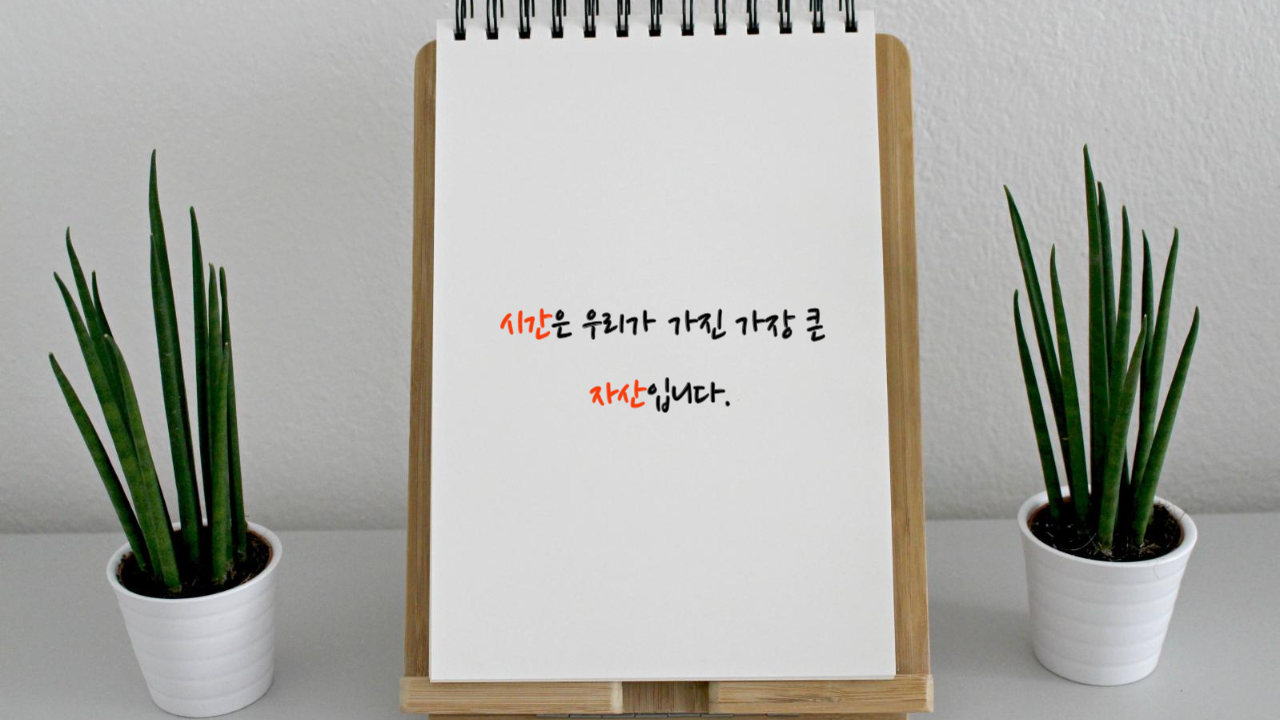 시간은 우리가 가진 가장 큰
자산입니다.